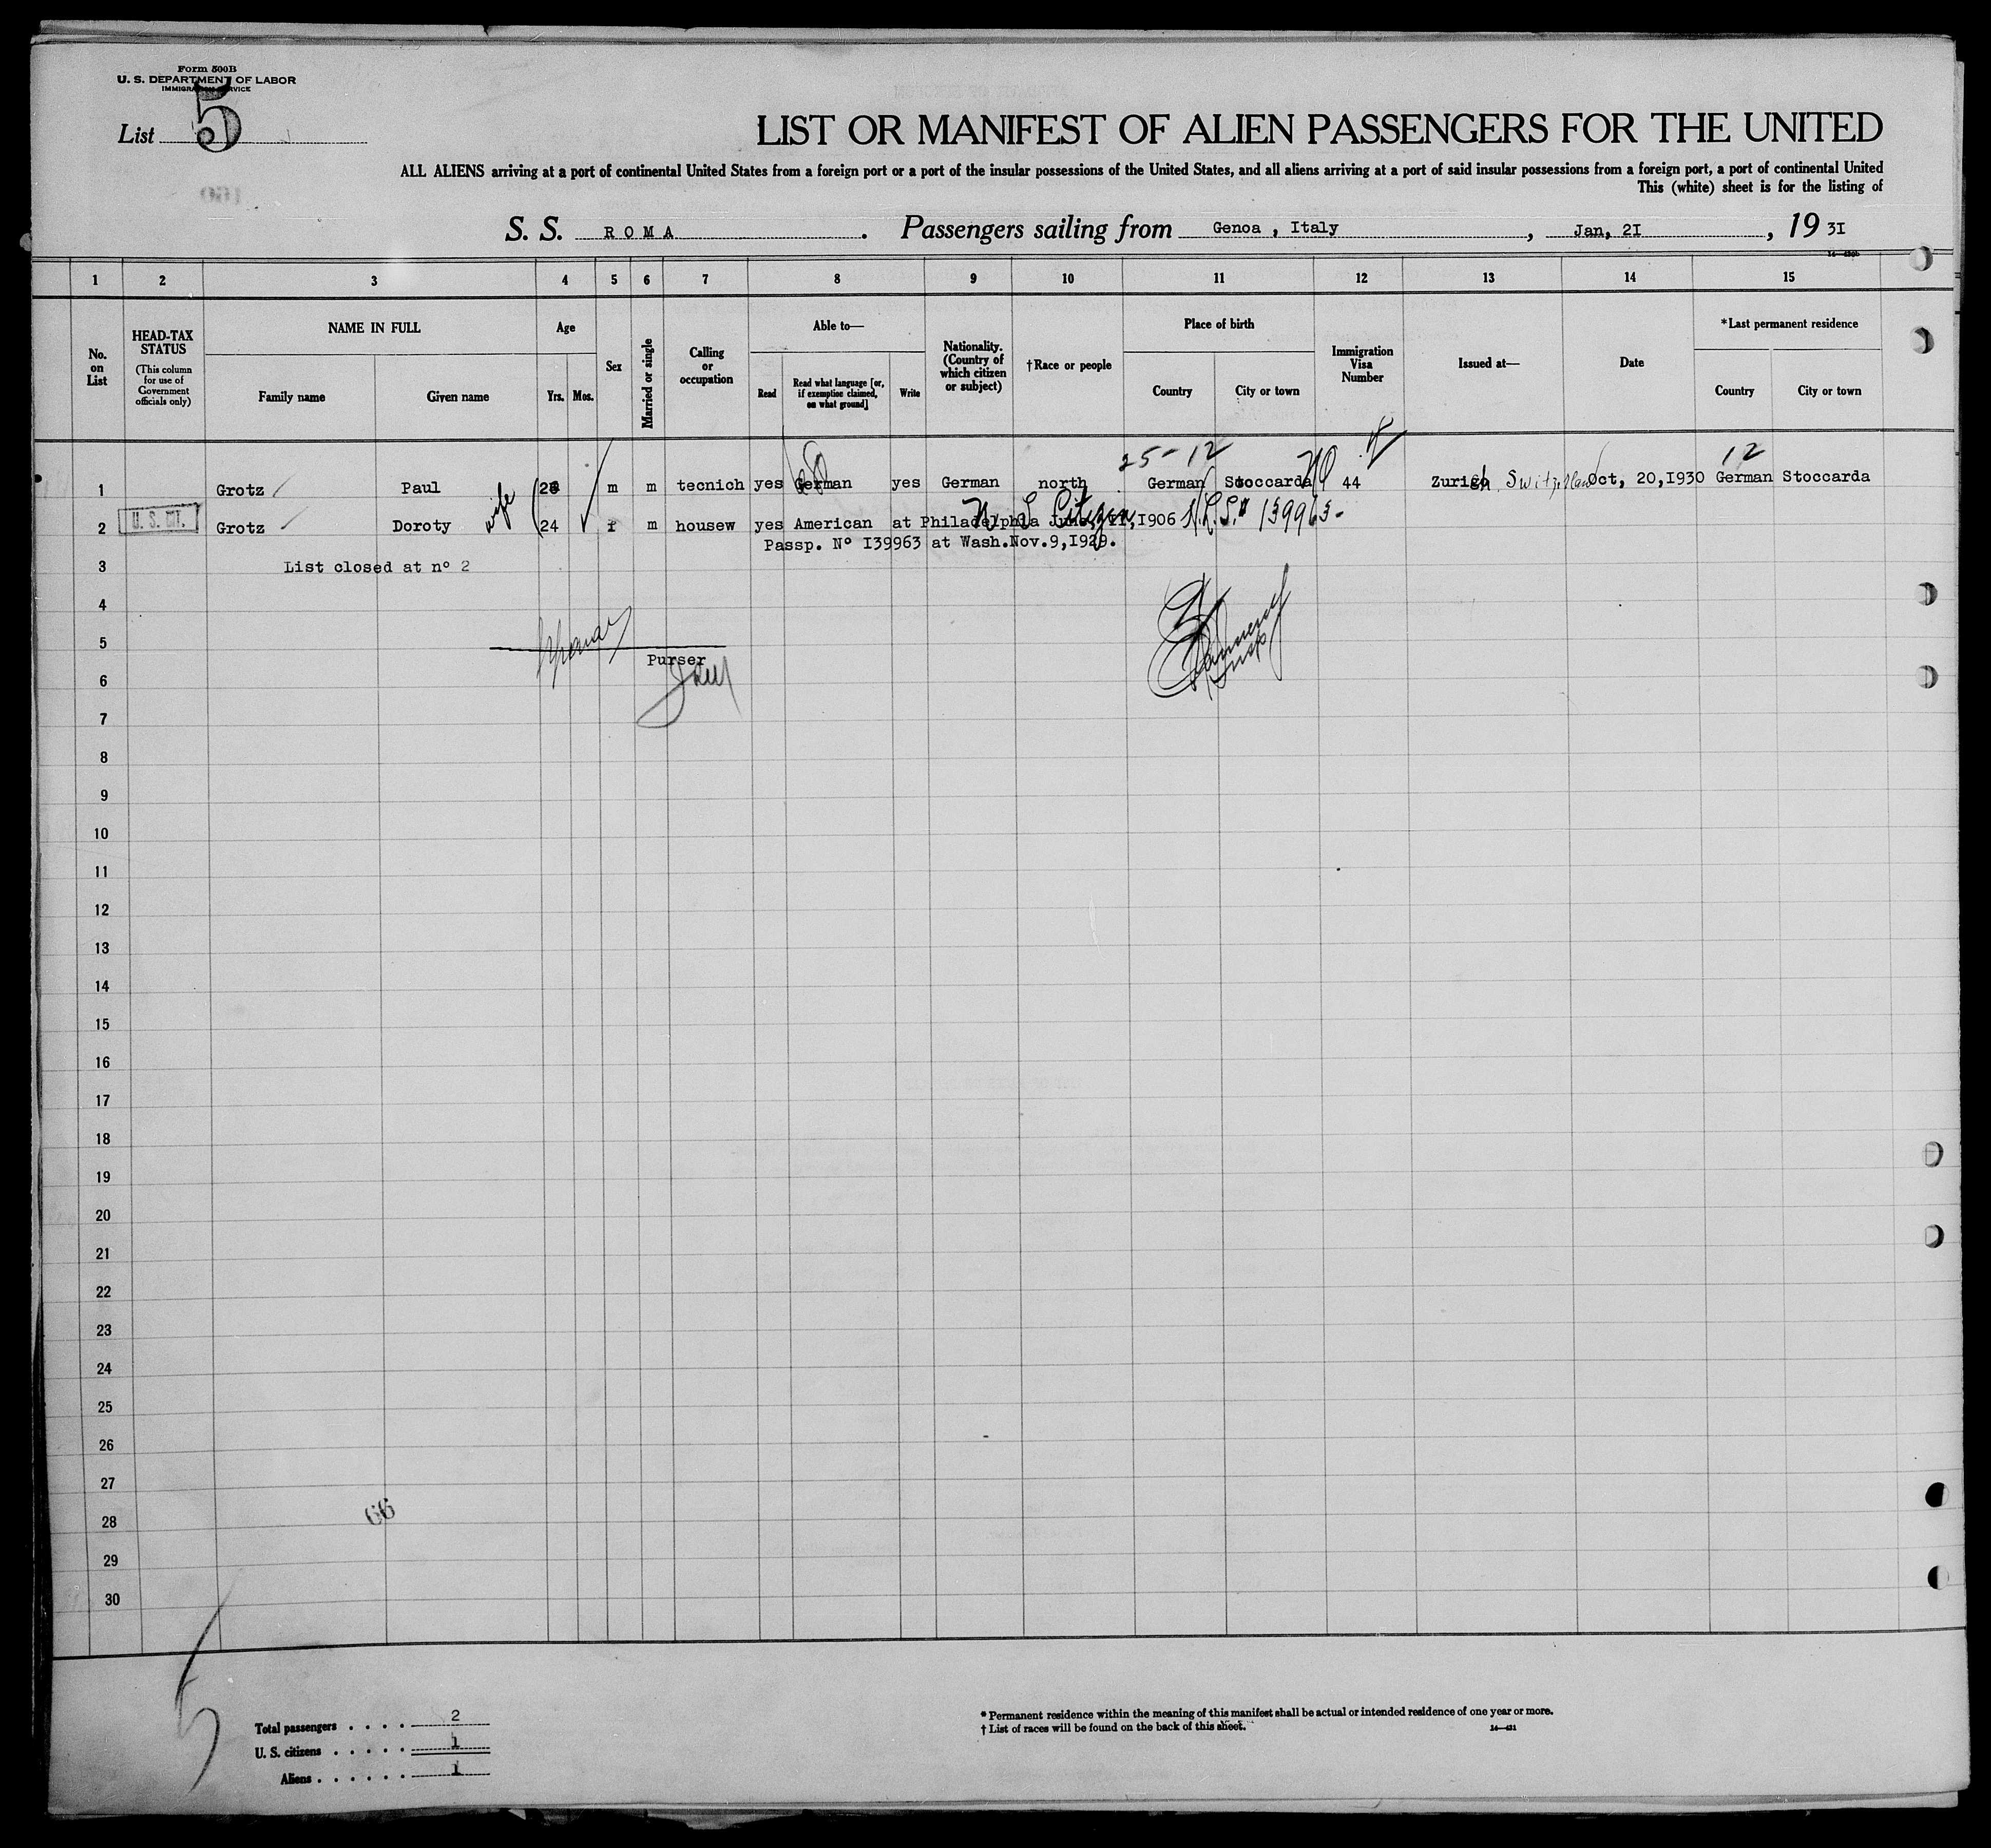 Form 500B
U. S. DEPARTMENT OF LABOR
IMMIGRATION SERVICE
List 5
LIST OR MANIFEST OF ALIEN PASSENGERS FOR THE UNITED
ALL ALIENS arriving at a port of continental United States from a foreign port or a port of the insular possessions of the United States, and all aliens arriving at a port of said insular possessions from a foreign port, a port of continental United
This (white) sheet is for the listing of
S. S. ROMA. Passengers sailing from Genoa , Italy, Jan, 2I, 19 3I
1 2 3 4 5 6 7 8 9 10 11 12 13 14 15
No. on List
HEAD-TAX STATUS
(This column for use of Government officials only)
NAME IN FULL
Family name Given name
Age
Yrs. Mos.
Sex
Married or single
Calling or occupation
Able to—
Read Read what language [or, if exemption claimed, on what ground] Write
Nationality. (Country of which citizen or subject)
†Race or people
Place of birth
Country City or town
Immigration Visa Number
Issued at—
Date
*Last permanent residence
Country City or town
25-12 12
1 Grotz Paul m m tecnich yes German yes German north German Stoccarda 44 Zurigh Switzerland Oct, 20,I930 German Stoccarda
2 U. S. CIT. Grotz Doroty wife 24 f m housew yes American at Philadelphia June, II, I906 139963-
U S Citizen
Passp. Nº I39963 at Wash.Nov.9,I929.
3 List closed at nº 2
4
5
Purser
6
7
8
9
10
11
12
13
14
15
16
17
18
19
20
21
22
23
24
25
26
27
66
28
29
30
5
Total passengers . . . . 2
U. S. citizens . . . . . 1
Aliens . . . . . . 1
* Permanent residence within the meaning of this manifest shall be actual or intended residence of one year or more.
† List of races will be found on the back of this sheet.
14—431